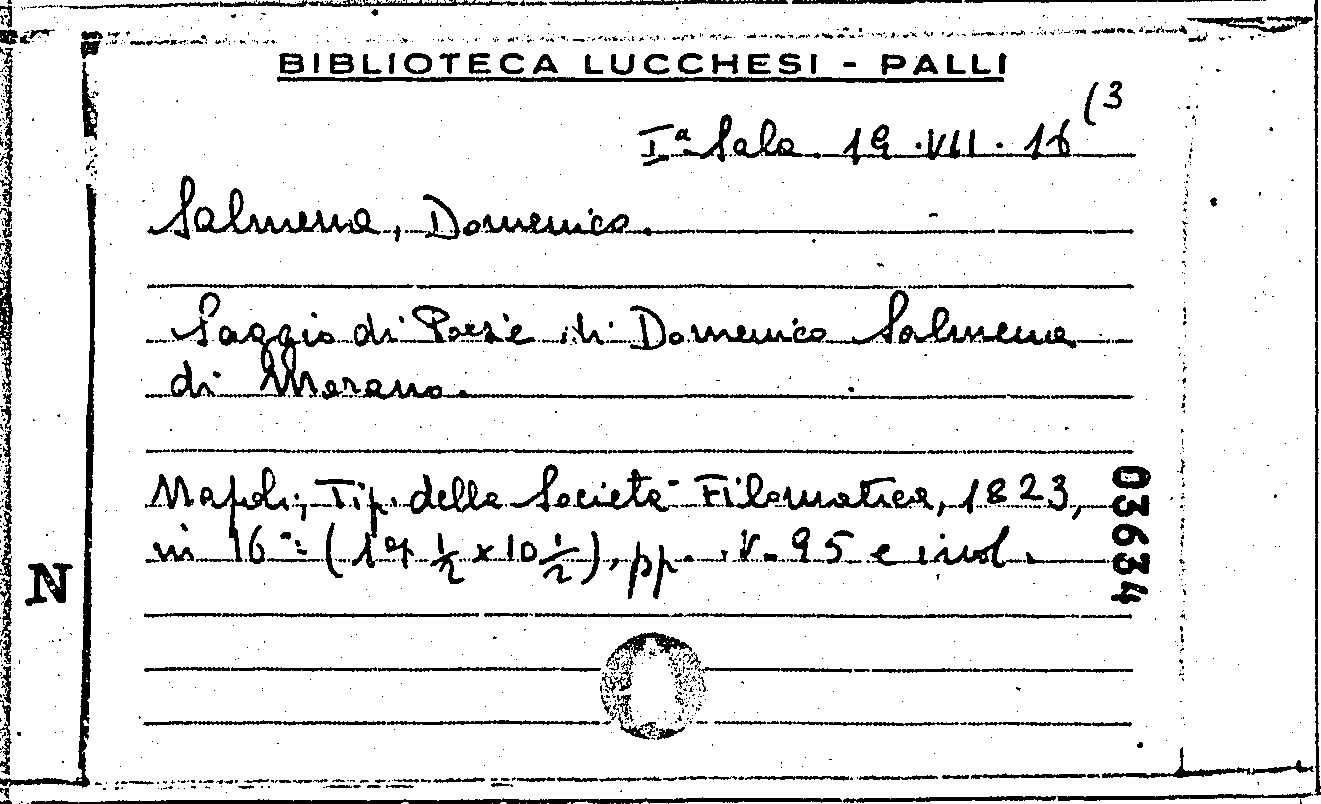 BIBLIOTECA LUCCHESI - PALLI
Iª Sala. 19.VII.16 (3
Salmena, Domenico.
Saggio di Poesie di Domenico Salmena
di Morano.
Napoli, Tip. della Società Filomatica, 1823,
in 16º (19 ½ x 10 ½), pp. V-95 e i vol.
03634
N